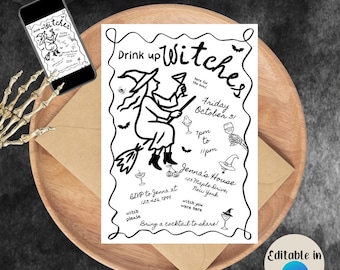 Drink up
Witches
here for
the boos
Friday
October 31
7pm
to
11pm
Jenna's House
123 Maple Lawn,
New York
RSVP to Jenna at
123.456.7899
witch
please
witch you
were here
Bring a cocktail to share!
Editable in